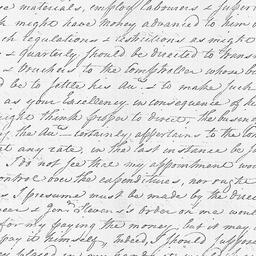 materials, employ labourers & super
might have money advanced to him
ch regulations & restrictions as might
& quarterly, should be directed to trans
& vouchers to the Comptroller whose bu
d be to settle his & to make such
as your Excellency in consequence of h
might think proper to direct, the business
the certainly appertains to the Com
at any rate, in the last instance be ju
I do not see that my appointment wou
control over the expenditure, nor ought
I presume must be made by the direct
& Genl Stevens's order on me woul
for my paying the money, but it may
pay it himself, Indeed, I should suppose
placed in